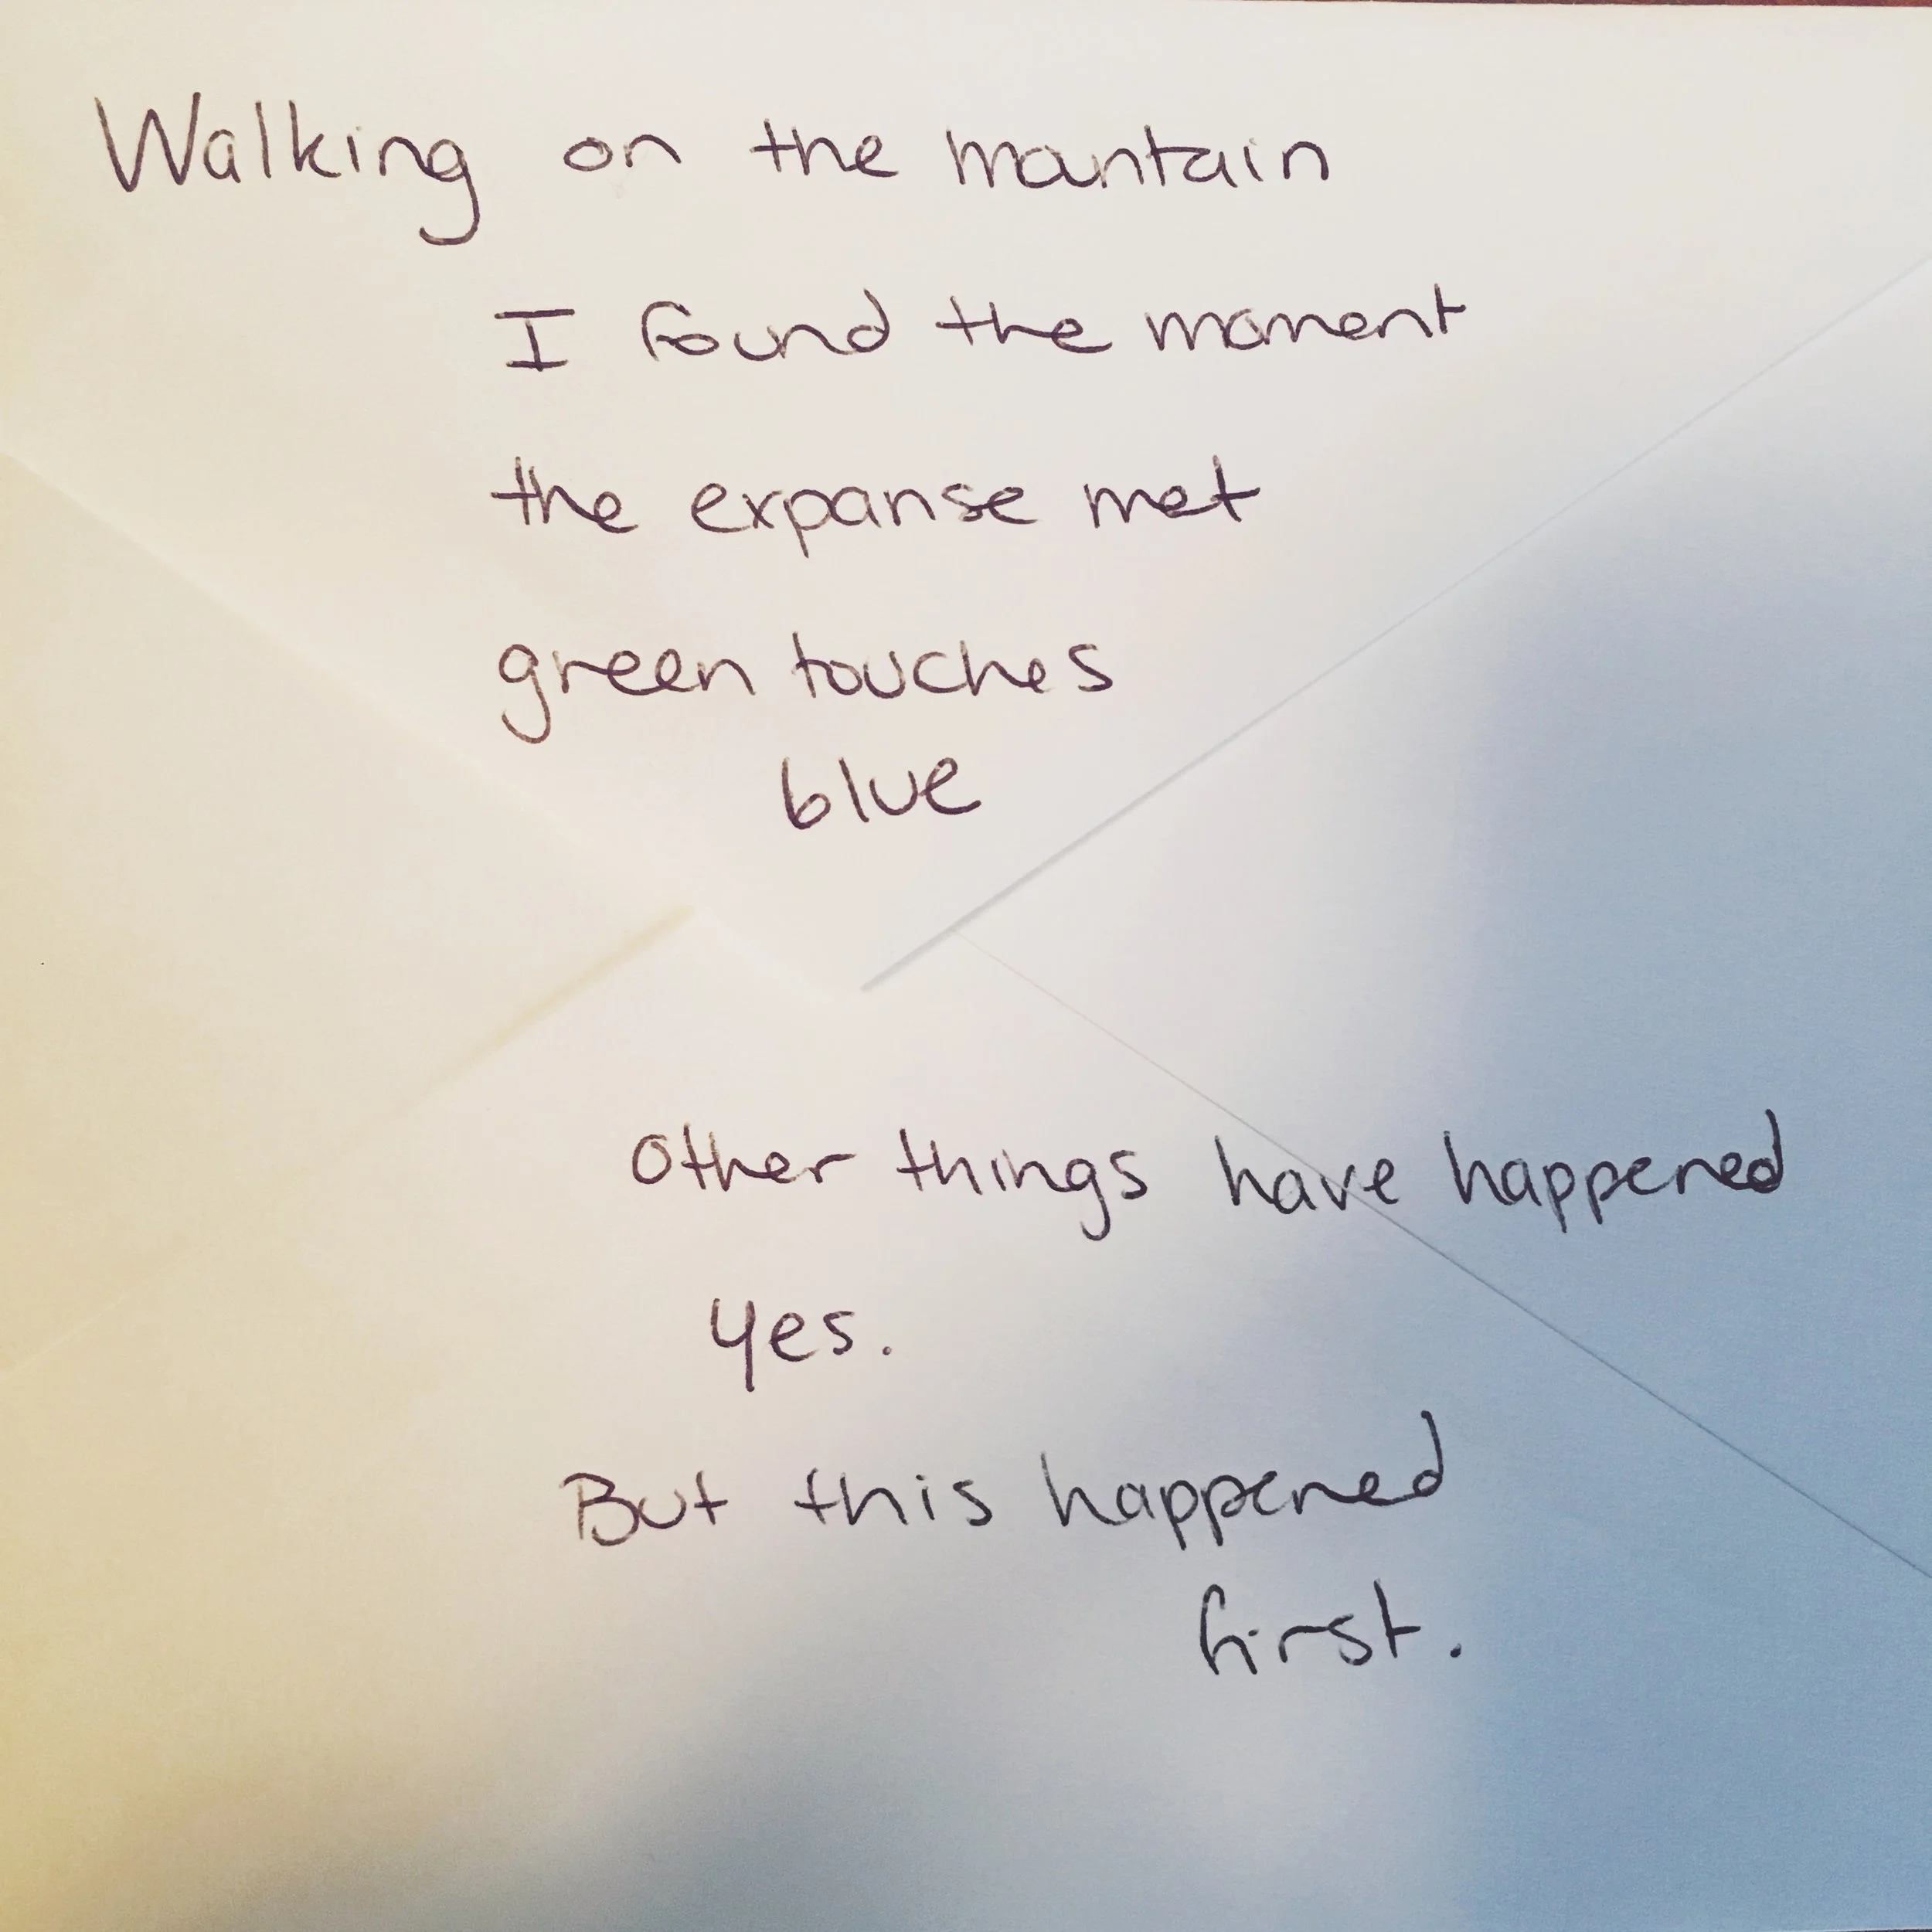 Walking on the mountain
I found the moment
the expanse met
green touches
blue
Other things have happened
yes.
But this happened
first.